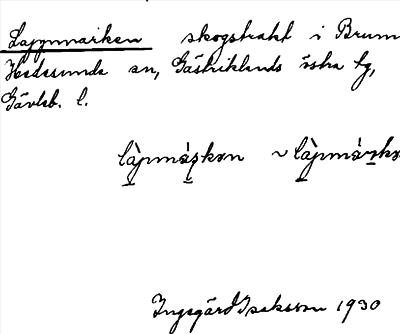 Lappmarken skogstrakt i Brunn
Hedesunda sn, Gästriklands östra tg,
Gävleb. l.
Ingegärd Isaksson 1930